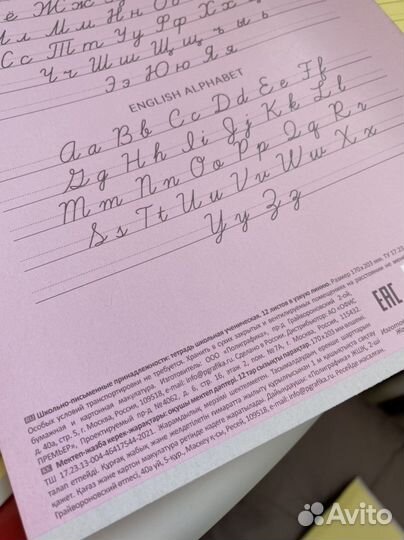 Жж
Лл Мм Нн Оо
Сс Тт Уу Фф Хх
Чч Шш Щщ ъ ы ь
Ээ Юю Яя
ENGLISH ALPHABET
Aa Bb Cc Dd Ee Ff
Gg Hh Ii Jj Kk Ll
Mm Nn Oo Pp Qq Rr
Ss Tt Uu Vv Ww Xx
Yy Zz
Школьно-письменные принадлежности: тетрадь школьная ученическая. 12 листов в узкую линию. Размер 170x203 мм. ТУ 17.23
Особых условий транспортировки не требуется. Хранить в сухих закрытых и вентилируемых помещениях на расстоянии не
бумажная и картонная макулатура. Изготовитель: ООО «Полиграфикс», пр-д Грайвороновский 2-ой,
д. 40а, стр. 5, г. Москва, Россия, 109518, e-mail: info@pgrafika.ru. Сделано в России. Дистрибьютор: АО «ОФИС
ПРЕМЬЕР», Проектируемый пр-д №4062, д. 6, стр. 16, этаж 2, пом. №7А, г. Москва, Россия, 115432.
Мектеп-жазба керек-жарақтары: оқушы мектеп дәптері. 12 тар сызықты парақтар. 170x203 мм өлшемі.
ТШ 17.23.13-004-46417544-2021. Жарамдылық мерзімі шектелмеген. Тасымалдаудың ерекше шарттарын
талап етпейді. Құрғақ жабық және желдетілетін
қажет. Қағаз және картон макулатура ретінде кәдеге жаратылады. Дайындаушы: «Полиграфикс» ЖШҚ, 2-ші
Грайвороновский өткелі, 40а үй, 5-құр., Мәскеу қ-сы, Ресей, 109518, e-mail: info@pgrafika.ru. Ресейде жасалған.
EAC
Avito